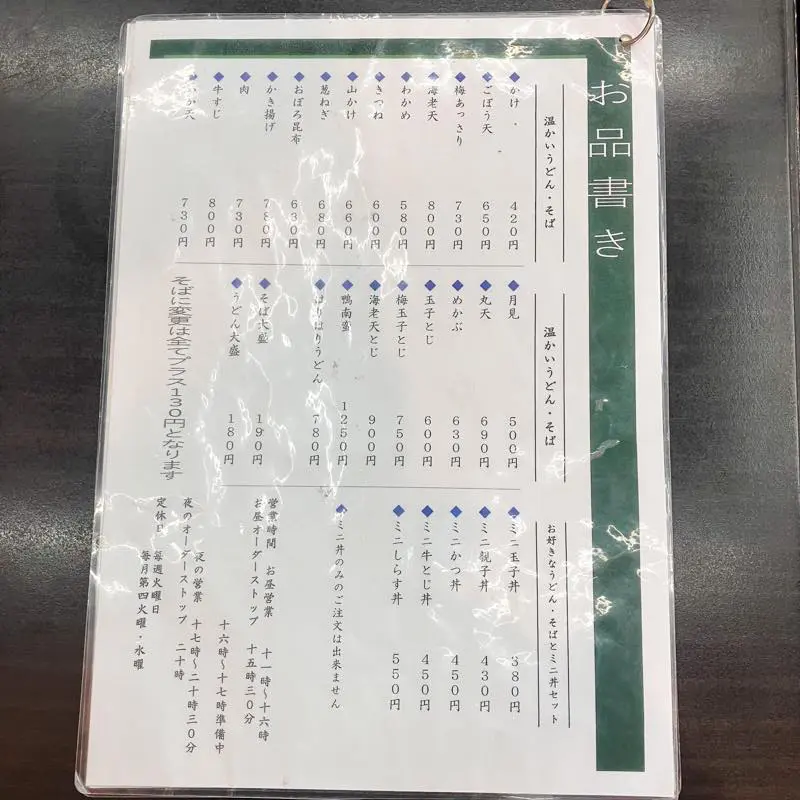 お品書き
温かいうどん・そば
かけ 420円
ごぼう天 650円
梅あっさり 730円
海老天 800円
わかめ 580円
きつね 600円
山かけ 660円
葱ねぎ 680円
おぼろ昆布 630円
かき揚げ 780円
肉 730円
牛すじ 800円
いか天 730円
温かいうどん・そば
月見 500円
丸天 690円
めかぶ 630円
玉子とじ 600円
梅玉子とじ 750円
海老天とじ 900円
鴨南蛮 1250円
はりはりうどん 780円
そば大盛 190円
うどん大盛 180円
そばに変更は全てプラス130円となります
お好きなうどん・そばとミニ丼セット
ミニ玉子丼 380円
ミニ親子丼 430円
ミニかつ丼 450円
ミニ牛とじ丼 450円
ミニしらす丼 550円
ミニ丼のみのご注文は出来ません
営業時間 お昼営業 十一時~十六時
お昼オーダーストップ 十五時三0分
十六時~十七時準備中
夜の営業 十七時~二十時三0分
夜のオーダーストップ 二十時
定休日 毎週火曜日
毎月第四火曜・水曜